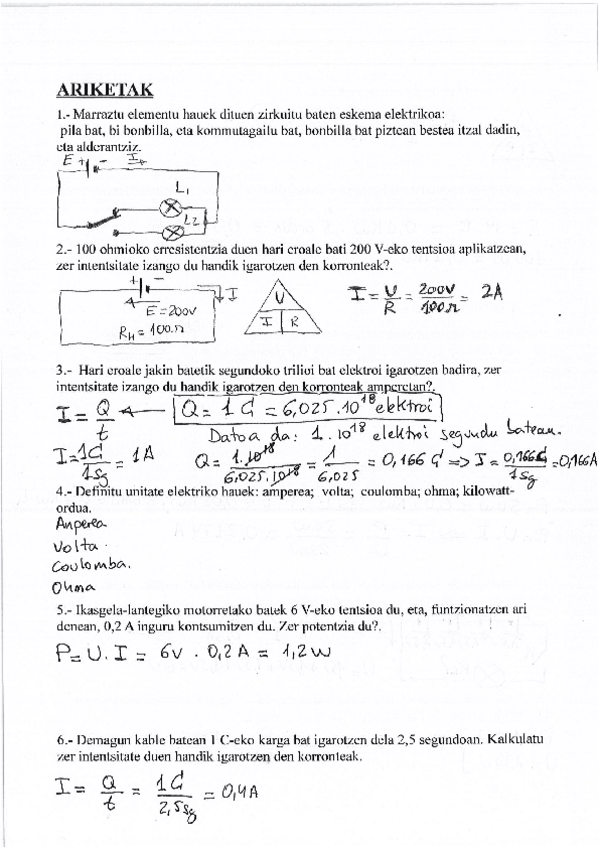 ARIKETAK
1.- Marraztu elementu hauek dituen zirkuitu baten eskema elektrikoa:
pila bat, bi bonbilla, eta kommutagailu bat, bonbilla bat piztean bestea itzal dadin,
eta alderantziz.
E + - I+
L1
L2
2.- 100 ohmioko erresistentzia duen hari eroale bati 200 V-eko tentsioa aplikatzean,
zer intentsitate izango du handik igarotzen den korronteak?.
+ - I
E = 200V
RH = 100Ω
U
I R
I = U/R = 200V/100Ω = 2A
3.- Hari eroale jakin batetik segundoko trilioi bat elektroi igarotzen badira, zer
intentsitate izango du handik igarotzen den korronteak amperetan?.
I = Q/t ← Q = 1 C = 6,025.10^18 elektroi
Datoa da: 1.10^18 elektroi segundu batean.
I = 1C/1sg = 1A Q = 1.10^18/6,025.10^18 = 1/6,025 = 0,166 C => I = 0,166C/1sg = 0,166A
4.- Definitu unitate elektriko hauek: amperea; volta; coulomba; ohma; kilowatt-
ordua.
Anperea
Volta.
Coulomba.
Ohma
5.- Ikasgela-lantegiko motorretako batek 6 V-eko tentsioa du, eta, funtzionatzen ari
denean, 0,2 A inguru kontsumitzen du. Zer potentzia du?.
P = U.I = 6V . 0,2A = 1,2W
6.- Demagun kable batean 1 C-eko karga bat igarotzen dela 2,5 segundoan. Kalkulatu
zer intentsitate duen handik igarotzen den korronteak.
I = Q/t = 1C/2,5sg = 0,4A